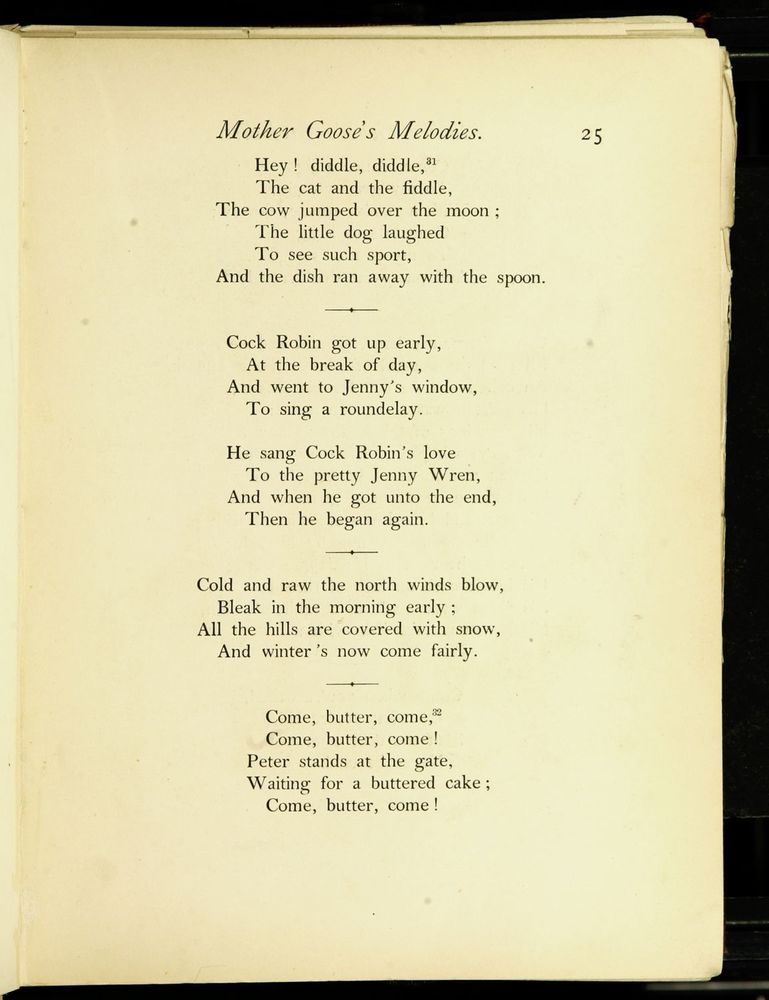 Mother Goose's Melodies. 25
Hey ! diddle, diddle,³¹
The cat and the fiddle,
The cow jumped over the moon ;
The little dog laughed
To see such sport,
And the dish ran away with the spoon.
Cock Robin got up early,
At the break of day,
And went to Jenny's window,
To sing a roundelay.
He sang Cock Robin's love
To the pretty Jenny Wren,
And when he got unto the end,
Then he began again.
Cold and raw the north winds blow,
Bleak in the morning early ;
All the hills are covered with snow,
And winter 's now come fairly.
Come, butter, come,³²
Come, butter, come !
Peter stands at the gate,
Waiting for a buttered cake ;
Come, butter, come !